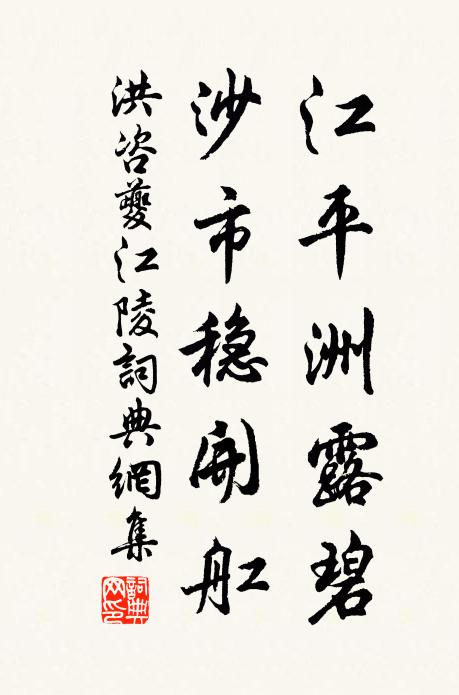 江平洲露碧
沙市穏開舡
洪咨夔江陵詞典網集
詞典网印